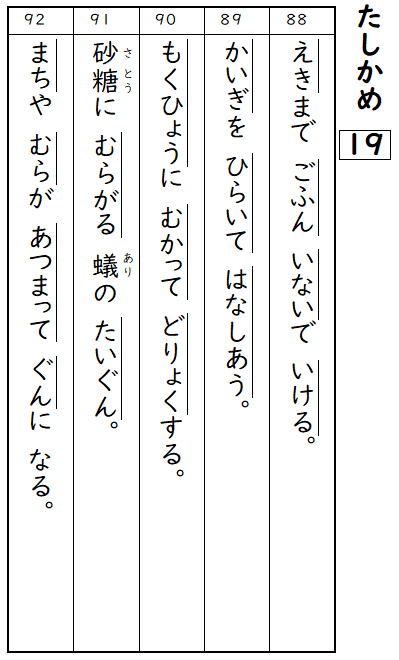 たしかめ
19
88
えきまで ごふん いないで いける。
89
かいぎを ひらいて はなしあう。
90
もくひょうに むかって どりょくする。
91
砂糖に むらがる 蟻の たいぐん。
さとう
あり
92
まちや むらが あつまって ぐんに なる。